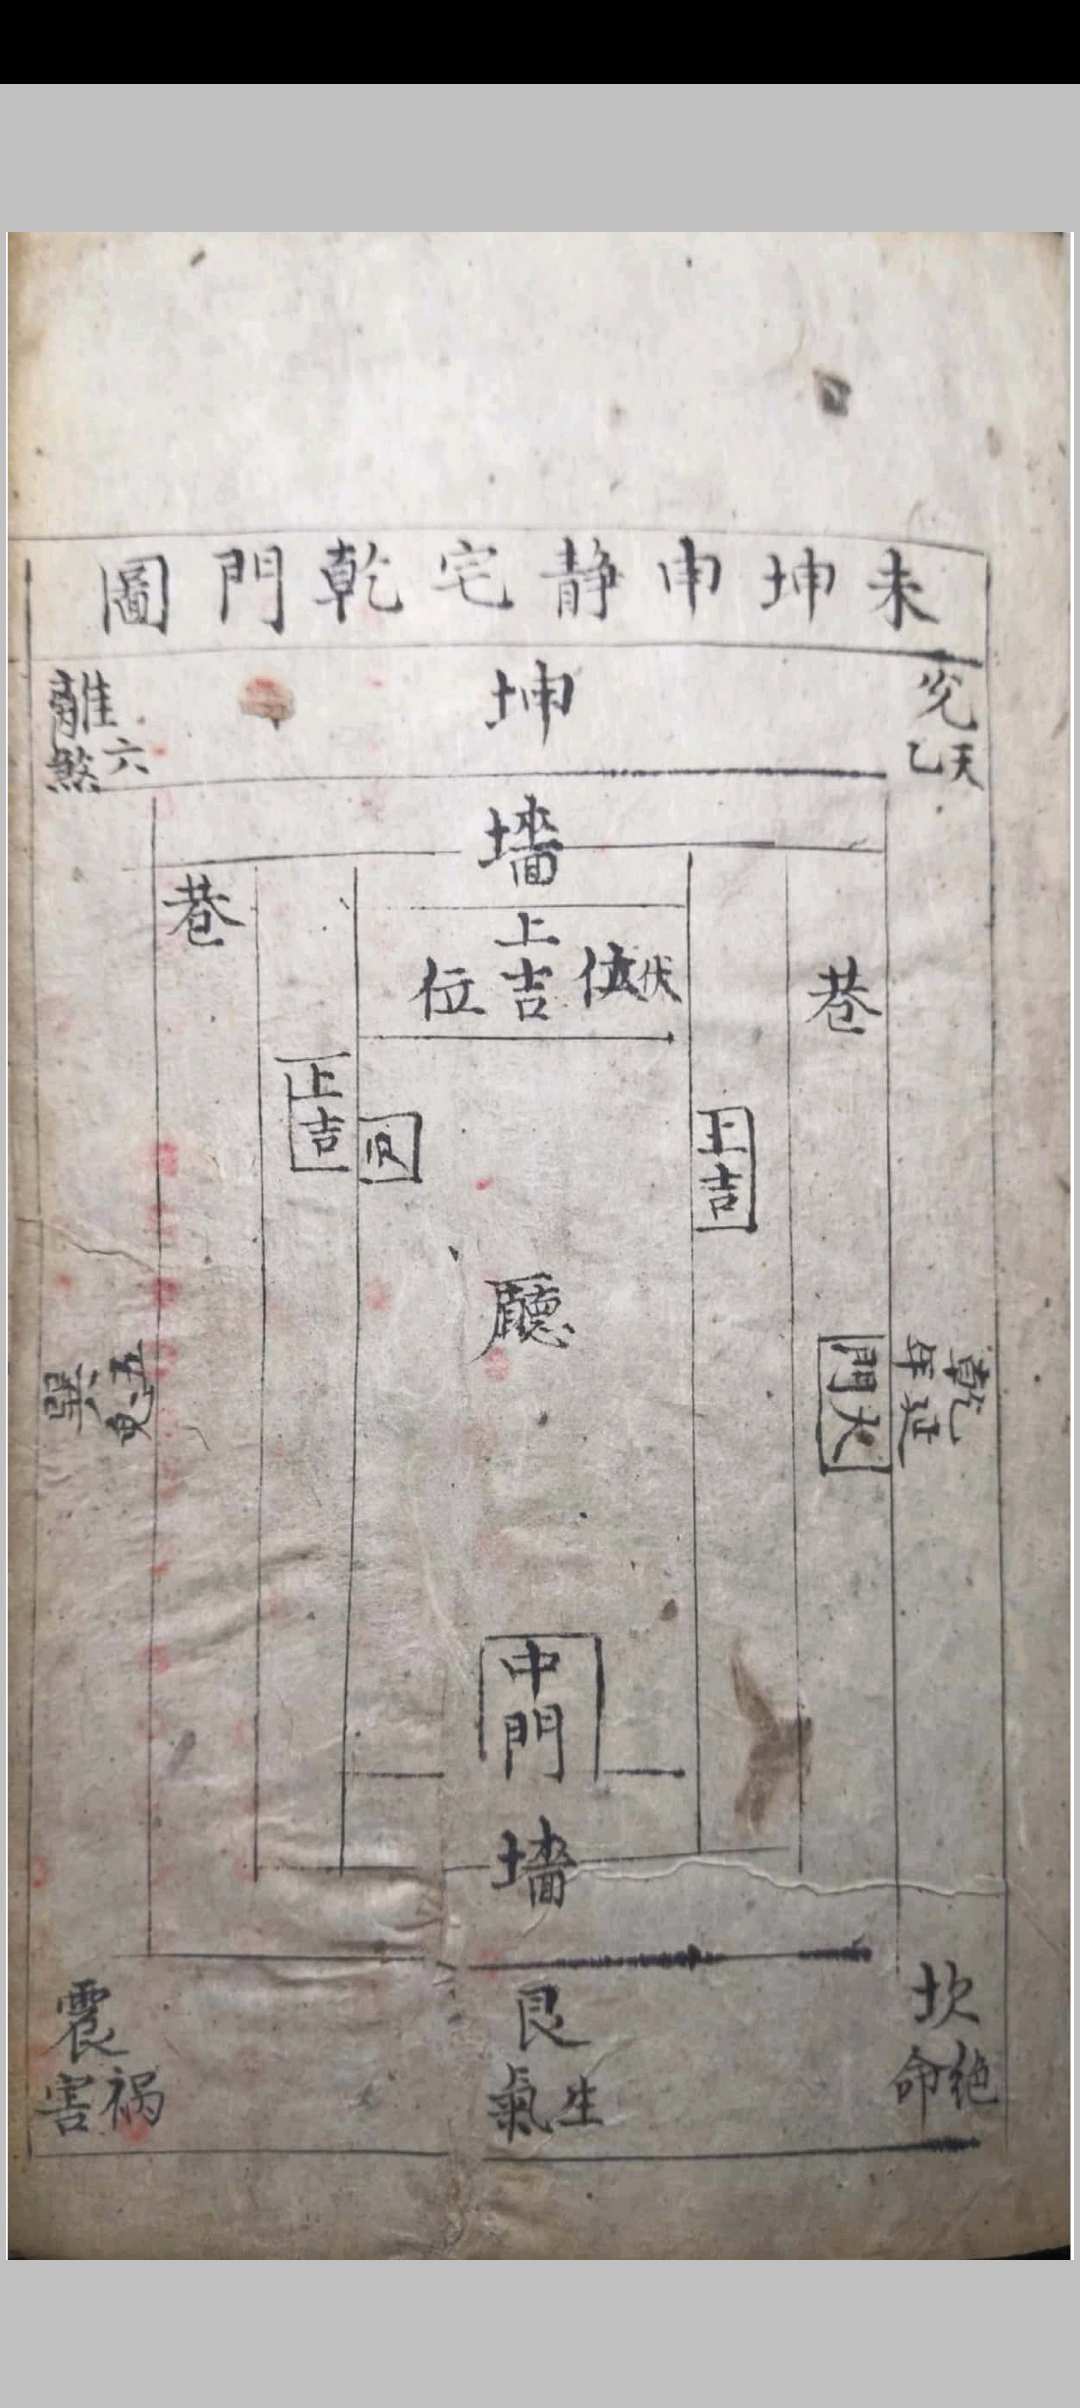 未坤申靜宅乾門圖
兌
天乙
坤
離
六煞
墻
巷
巷
伏位
上吉
位
上吉
上吉
廳
乾
延年
大門
五鬼
巽
中門
墻
坎
絶命
艮
生氣
震
禍害